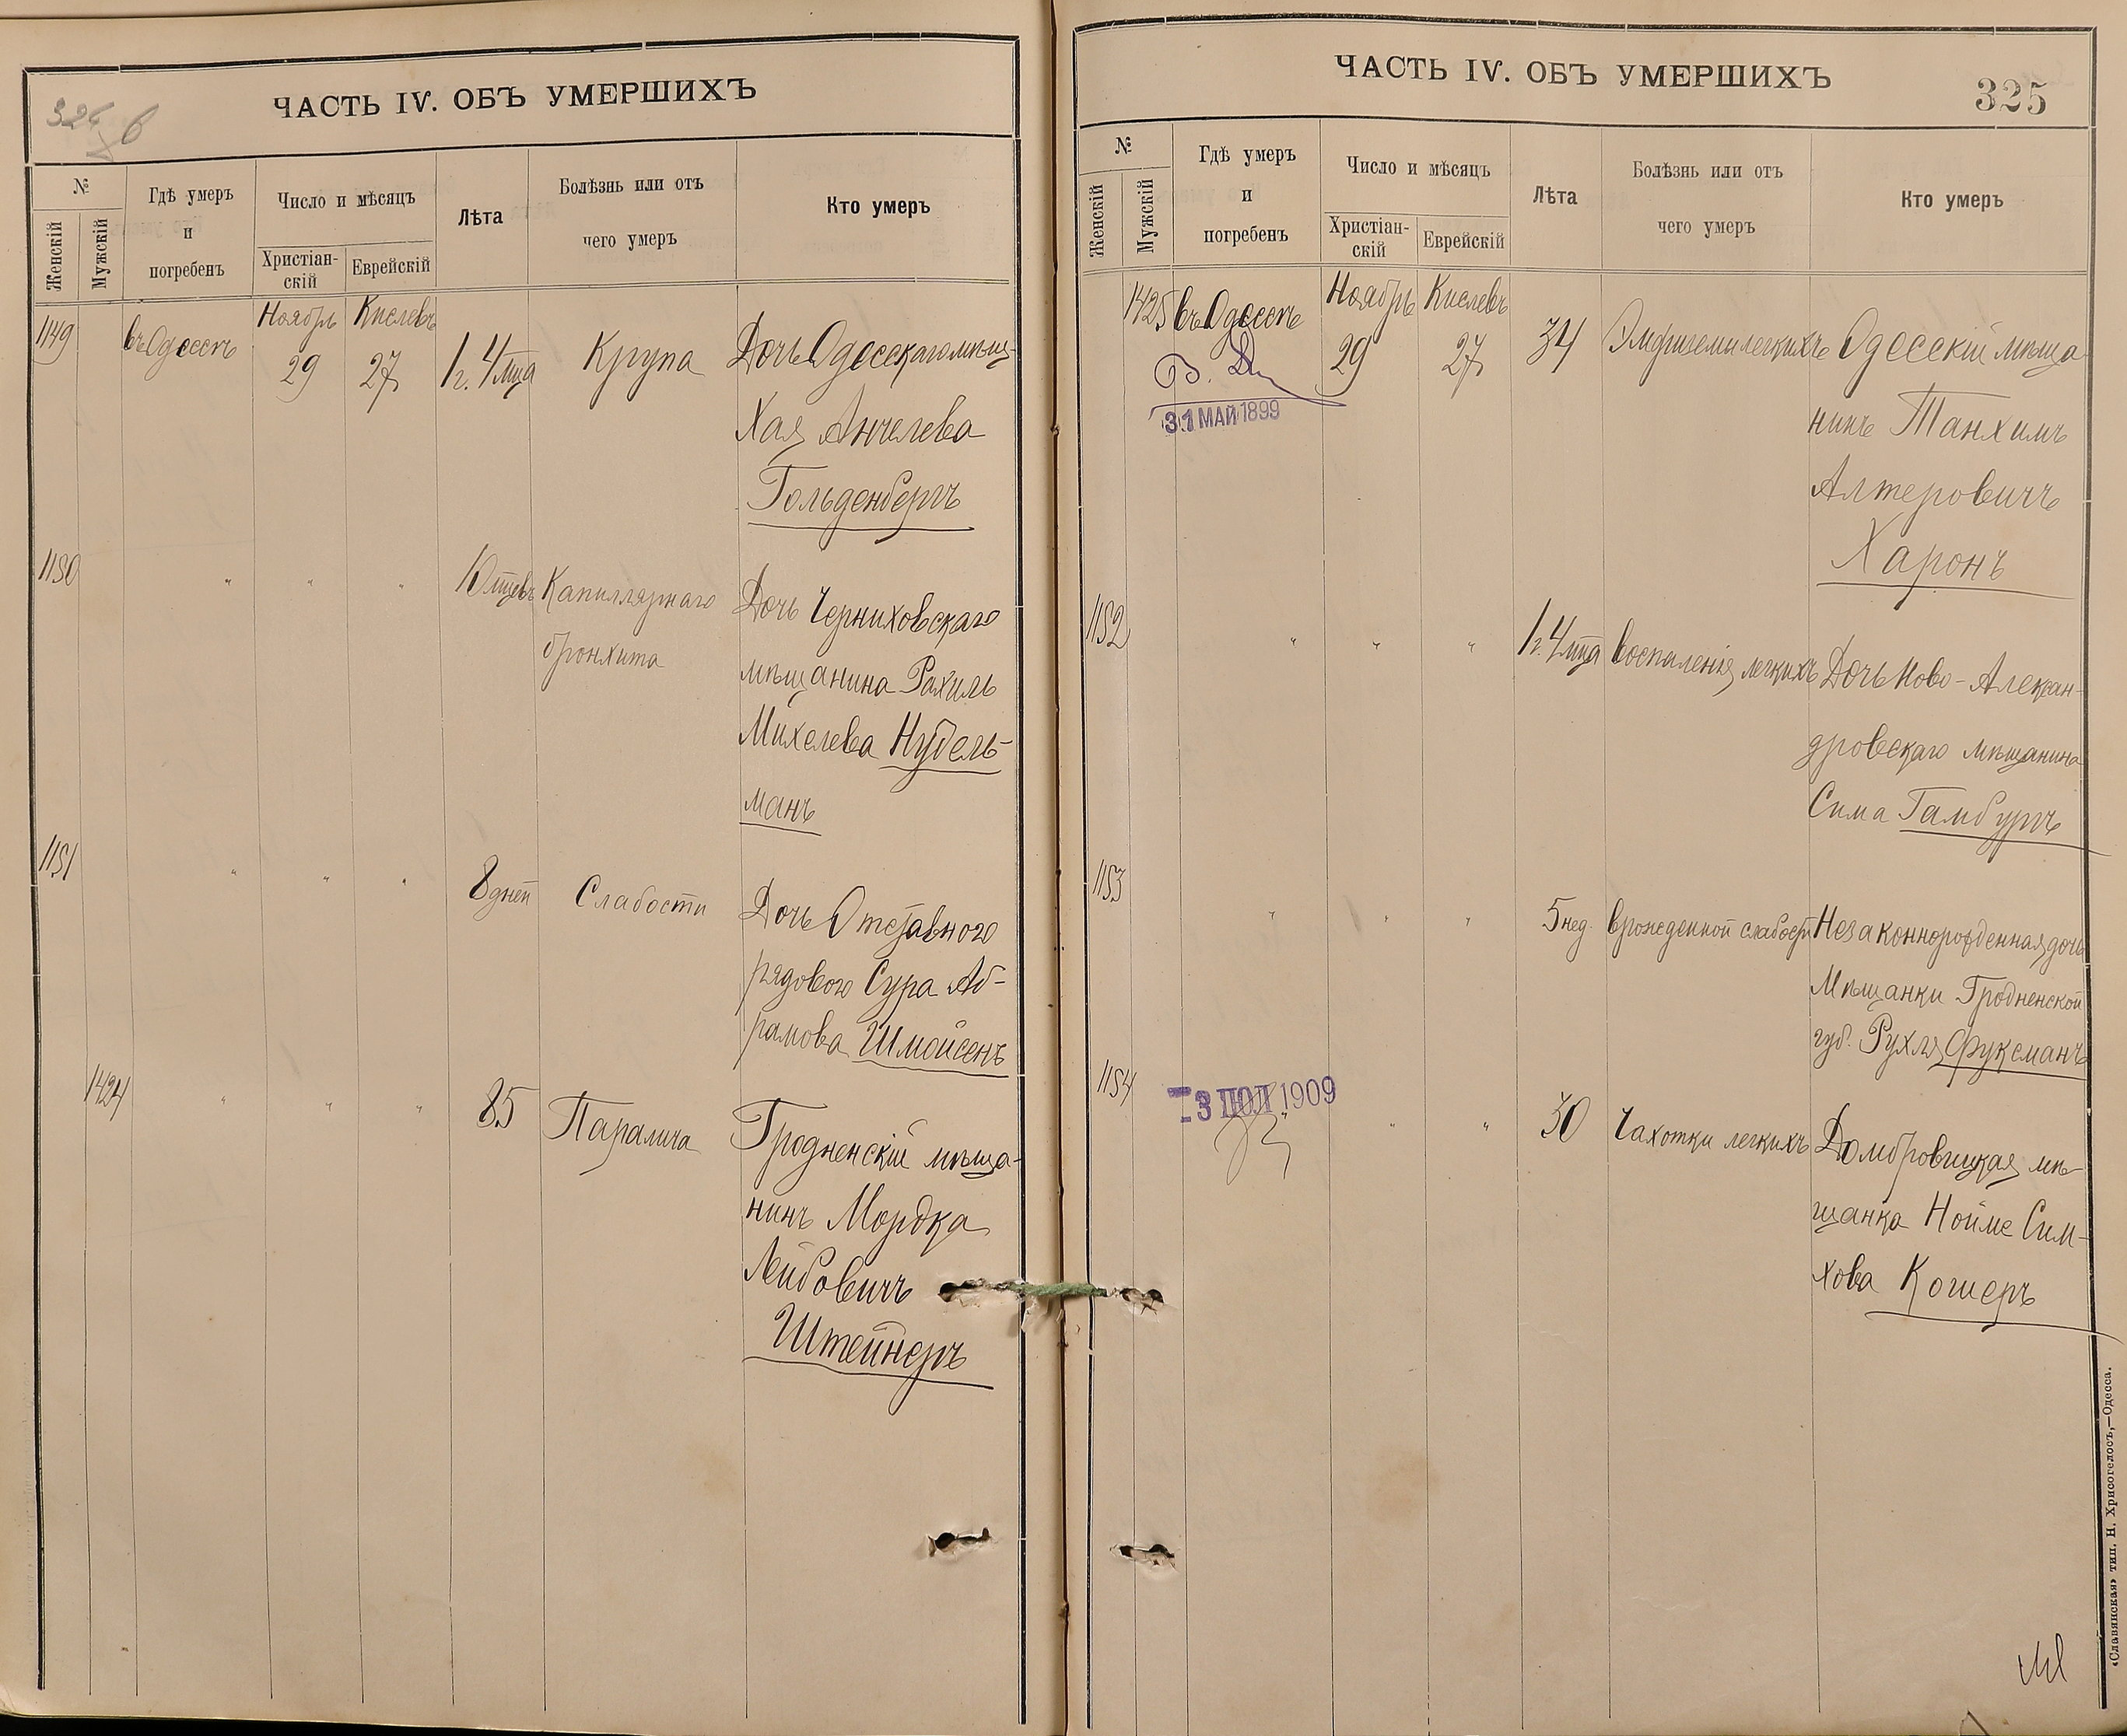 ЧАСТЬ IV. ОБЪ УМЕРШИХЪ
№
Женскій
Мужскій
Гдѣ умеръ
и
погребенъ
Число и мѣсяцъ
Христіан-
скій
Еврейскій
Лѣта
Болѣзнь или отъ
чего умеръ
Кто умеръ
1149
въ Одессѣ
Ноябрь
29
Кислевъ
27
1 г. 4 мца
Крупа
Дочь Одесскаго мѣщ-
Хая Анчелева
Гольденбергъ
1150
" " "
10 мцевъ
Капиллярнаго
бронхита
Дочь Черниховскаго
мѣщанина Рахиль
Михелева Нудель-
манъ
1151
" " "
8 дней
Слабости
Дочь Отставного
рядового Сура Аб-
рамова Шмойсенъ
1424
" " "
85
Паралича
Гродненскій мѣща-
нинъ Мордка
Лейбовичъ
Штейнеръ
ЧАСТЬ IV. ОБЪ УМЕРШИХЪ
325
№
Женскій
Мужскій
Гдѣ умеръ
и
погребенъ
Число и мѣсяцъ
Христіан-
скій
Еврейскій
Лѣта
Болѣзнь или отъ
чего умеръ
Кто умеръ
1425
въ Одессѣ
31 МАЙ 1899
Ноябрь
29
Кислевъ
27
34
Эмфиземы легкихъ
Одесскій мѣща-
нинъ Танхимъ
Алтеровичъ
Харонъ
1152
" " "
1 г. 4 мца
воспаленія легкихъ
Дочь Ново-Алексан-
дровскаго мѣщанина
Сима Гамбургъ
1153
" " "
5 нед.
врожденной слабости
Незаконнорожденная дочь
Мѣщанки Гродненской
губ. Рухля Фуксманъ
1154
-3 ІЮЛ 1909
" " "
30
Чахотки легкихъ
Домбровицкая мѣ-
щанка Нойме Сим-
хова Кошеръ
«Славянская» тип. Н. Хрисогелосъ,—Одесса.